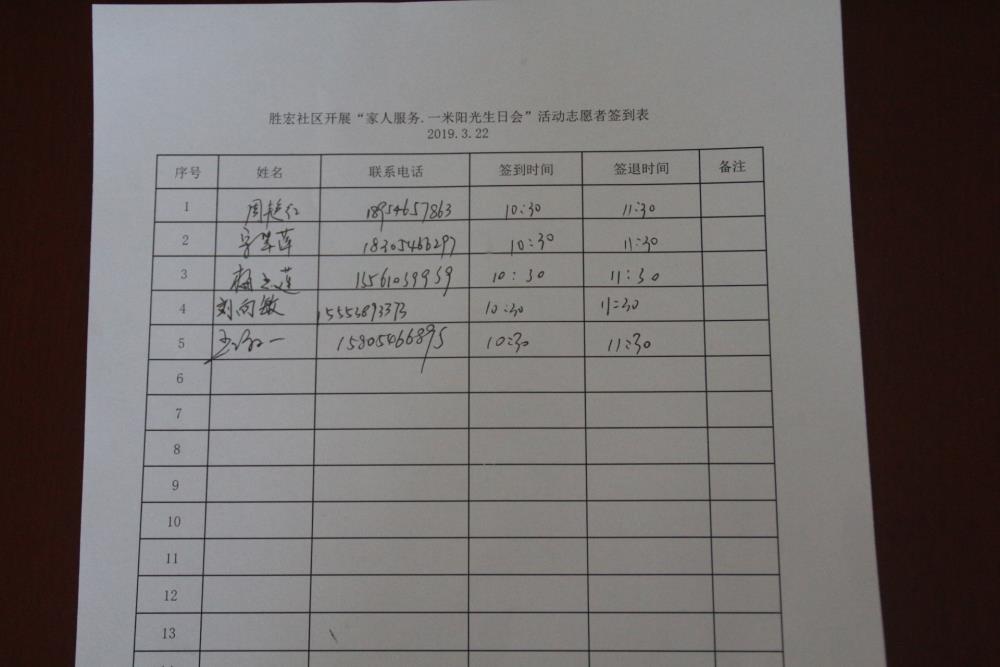 胜宏社区开展“家人服务.一米阳光生日会”活动志愿者签到表
2019.3.22
序号 姓名 联系电话 签到时间 签退时间 备注
1 18954657863 10:30 11:30
2 18305466297 10:30 11:30
3 15561039939 10:30 11:30
4 刘向敏 10:30 11:30
5 15805466895 10:30 11:30
6
7
8
9
10
11
12
13